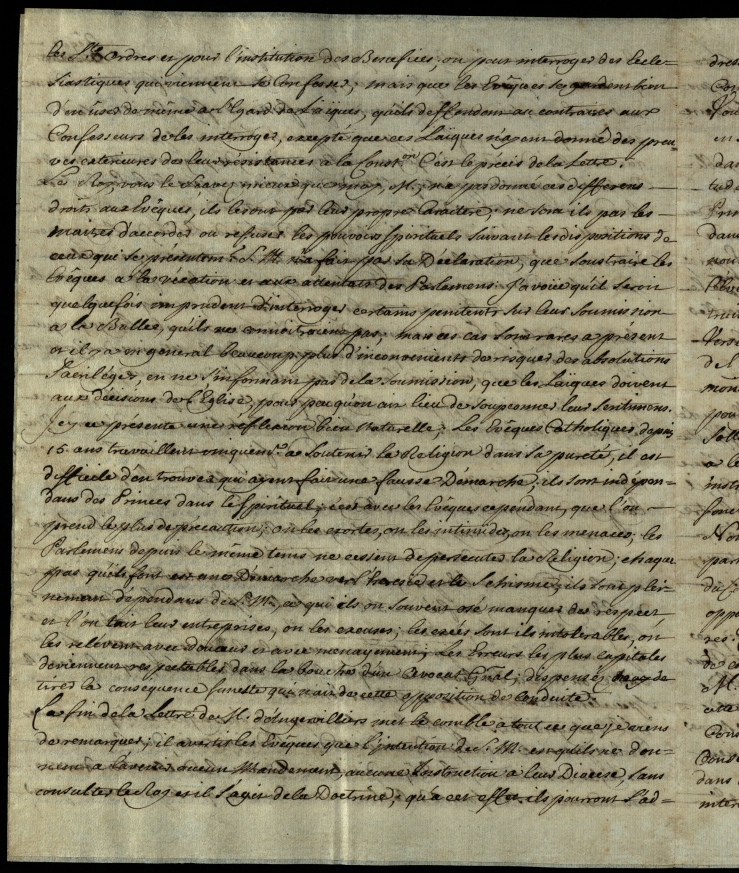 les S.ts ordres et pour l'institution des Benefices, ou pour interroger des Eccle=
siastiques qui viennent se Confesser; mais que les Evêques se gardent bien
d'en user de même a l'Egard des Laïques, qu'ils deffendent au contraire aux
Confesseurs de les interroger, excepté que ces Laïques n'ayent donné des preu=
ves exterieures de leur resistance a la Const.on C'est le précis de la Lettre.
Les Roy, vous le sçavez mieux que moy, M., ne pas donné ces differens
droits aux Evêques, ils les ont par leur propre Caractere; ne sont ils pas les
maitres d'accorder ou refuser les pouvoirs spirituels suivant les dispositions de
ceux qui se presentent? S. M. n'a fait par sa Declaration, que soustraire les
Evêques a la vexation et aux attentats des Parlemens. J'avoüe qu'il seroit
quelquefois imprudent d'interroger certains penitents sur leur soumission
a la Bulle, qu'ils ne connoitroient pas; mais ces cas sont rares a present
et il y a en general beaucoup plus d'inconvenients de risquer des absolutions
sacrileges, en ne s'informant pas de la soumission, que les Laïques doivent
aux decisions de l'Eglise, pour peu qu'on ait lieu de soupçonner leur sentimens.
Icy se présente une reflexion bien naturelle: Les Evêques Catholiques depuis
15. ans travaillent uniquem.t a soutenir la Religion dans sa pureté, il est
difficile d'en trouver qui ayent fait une fausse Démarche; ils sont indépen=
dans des Princes dans le Spirituel; c'est avec les Evêques cependant, que l'on
prend le plus de precaution; on les exorte, on les intimide, on les menace; les
Parlemens depuis le même tems ne cessent de persecuter la Religion; chaque
pas qu'ils font est une Démarche vers l'heresie et le Schisme; ils sont plei=
nement dépendans de S. M., a qui ils ont souvent osé manquer de respect
et l'on tait leurs entreprises, on les excuse; les excés sont ils intolerables, on
les releve avec douceur et avec menagement; Les Erreurs les plus capitales
deviennent respectables dans la bouche d'un Avocat Gñal; dispensés de
tirer la consequence funeste qui nait de cette opposition de Conduite.
La fin de la Lettre de M. d'Angervilliers met le comble a tout ce que je viens
de remarquer; il avertit les Evêques que l'intention de S. M. est qu'ils ne don=
nent a l'avenir aucun Mandement, aucune Instruction a leur Diocèse, sans
consulter le Roy et il s'agit de la Doctrine; qu'a cet effet ils pourront s'ad=